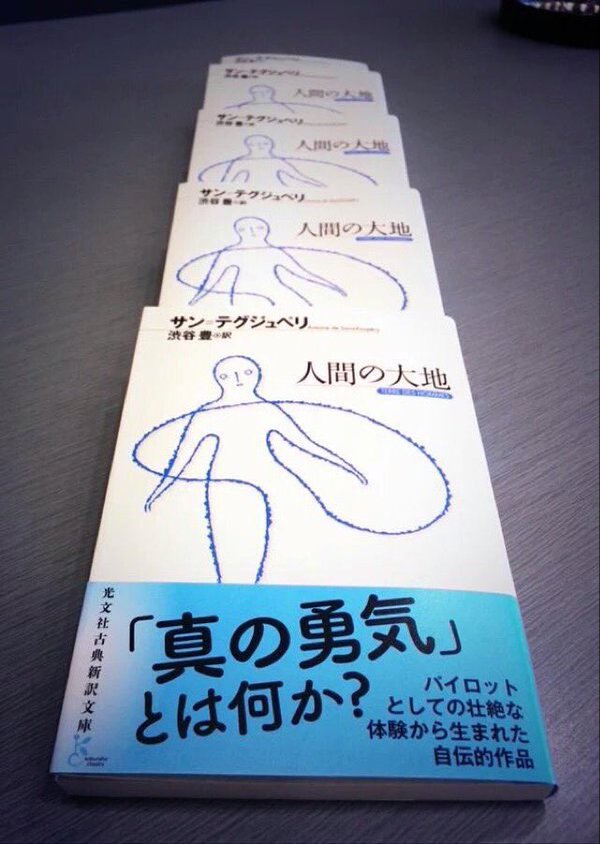 サン=テグジュペリ
人間の大地
サン=テグジュペリ
渋谷 豊・訳
人間の大地
サン=テグジュペリ
渋谷 豊・訳
人間の大地
サン=テグジュペリ
Antoine de Saint-Exupéry
渋谷 豊◎訳
人間の大地
TERRE DES HOMMES
「真の勇気」
とは何か?
パイロット
としての壮絶な
体験から生まれた
自伝的作品
光文社古典新訳文庫
kobunsha
classics